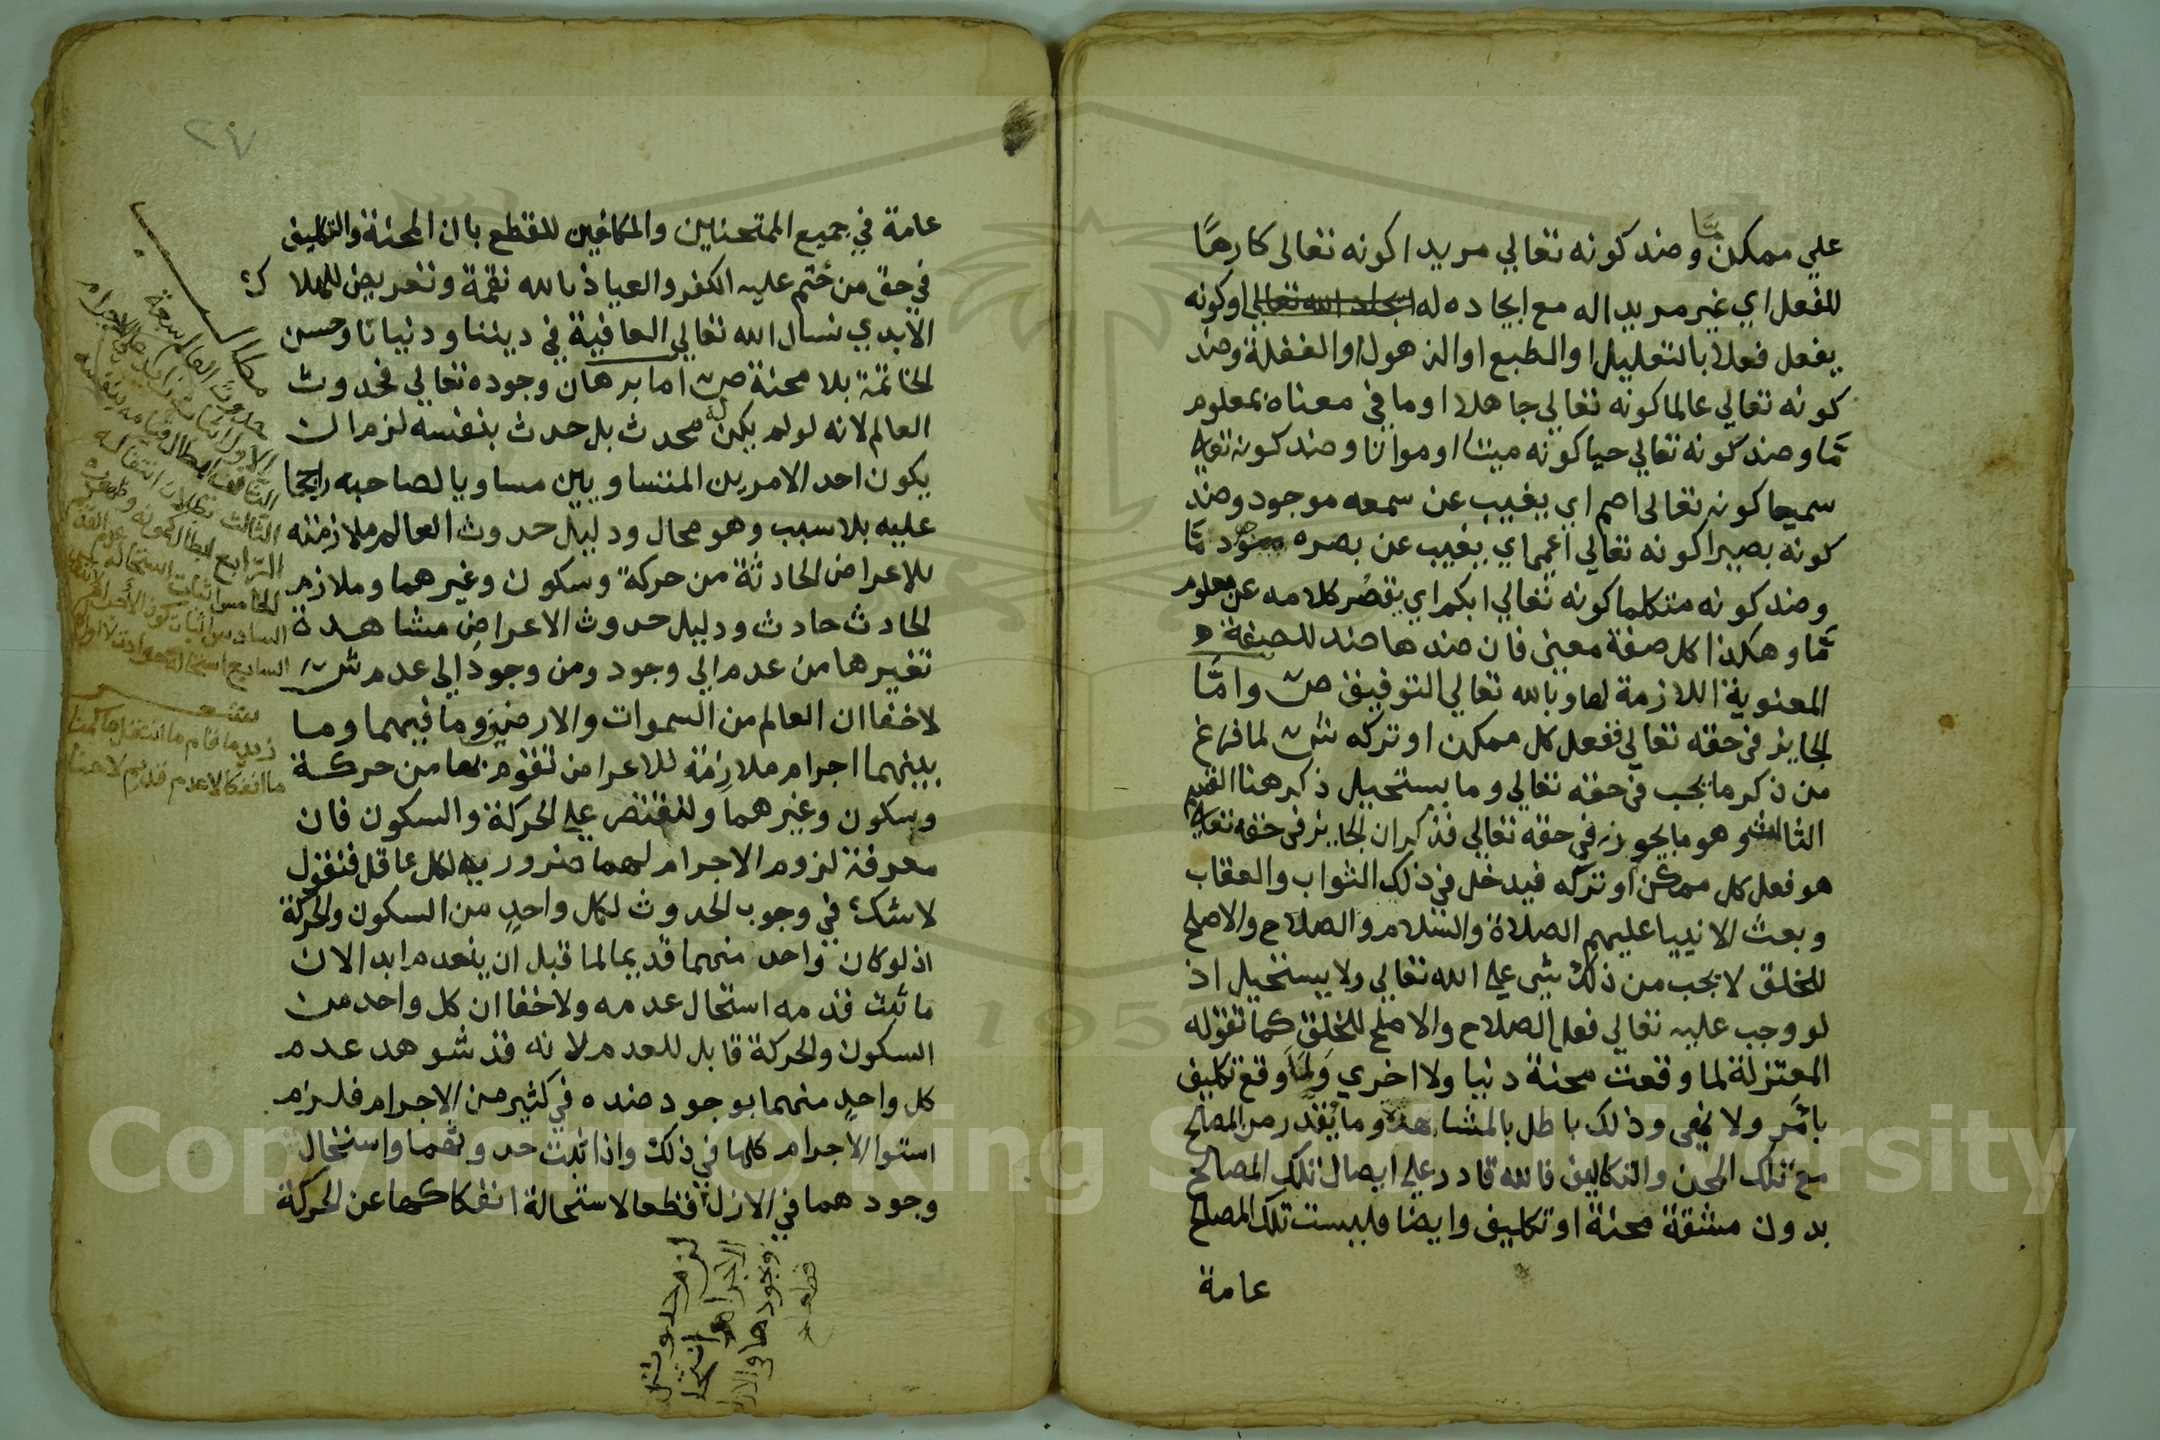 علي ممكن ما وضد كونه تعالي مريدا كونه تعالى كارها
للفعل اي غير مريد اله مع ايجاده له ايجاد الله تعالي او كونه
يفعل فعلا بالتعليل او الطبع او الذهول او الغفلة وضد
كونه تعالي عالما كونه تعالي جاهلا او ما في معناه بمعلوم
مّا وضد كونه تعالي حيا كونه ميتا او مواتا وضد كونه تعالي
سميعا كونه تعالى اصم اي يغيب عن سمعه موجود وضد
كونه بصيرا كونه تعالي اعمي اي يغيب عن بصره موجود مّا
وضد كونه متكلما كونه تعالي ابكم اي يقصُر كلامه عن معلوم
مّا وهكذا كل صفة معني فان ضدها ضد للصفة
المعنوية اللازمة لها وبالله تعالي التوفيق ص وامّا
الجايز في حقه تعالي ففعل كل ممكن او تركه ش لما فرغ
من ذكر ما يجب في حقه تعالي وما يستحيل ذكر هنا القسم
الثالث وهو ما يجوز في حقه تعالي فذكر ان الجايز في حقه تعالي
هو فعل كل ممكن او تركه فيدخل في ذلك الثواب والعقاب
وبعث الانبيا عليهم الصلاة والسلام والصلاح والاصلح
للخلق لا يجب من ذلك شي علي الله تعالي ولا يستحيل اذ
لو وجب عليه تعالي فعل الصلاح والاصلح للخلق كما تقوله
المعتزلة لما وقعت محنة دنيا ولا اخري ولما وقع تكليف
بامر ولا نهى وذلك باطل بالمشاهدة وما يُقدّر من المصالح
مع تلك المحن والتكاليف فالله قادر علي ايصال تلك المصالح
بدون مشقة محنة او تكليف وايضا فليست تلك المصالح
عامة
٢٧
عامة في جميع الممتحنين والمكلفين للقطع بان المحنة والتكليف
في حق من ختم عليه الكفر والعياذ بالله نقمة وتعريض للهلاك
الابدي نسال الله تعالي العافية في ديننا ودنيانا وحسن
الخاتمة بلا محنة ص اما برهان وجوده تعالي فحدوث
العالم لانه لو لم يكن له محدث بل حدث بنفسه لزم ان
يكون احد الامرين المتساويين مساويا لصاحبه راجحا
عليه بلا سبب وهو محال ودليل حدوث العالم ملازمته
للاعراض الحادثة من حركة وسكون وغيرهما وملازم
الحادث حادث ودليل حدوث الاعراض مشاهدة
تغيرها من عدم الي وجود ومن وجود الي عدم ش
لا خفا ان العالم من السموات والارضين وما فيهما وما
بينهما اجرام ملازمة للاعراض تقوم بها من حركة
وسكون وغيرهما ولنقتصر علي الحركة والسكون فان
معرفة لزوم الاجرام لهما ضرورية لكل عاقل فنقول
لا شك في وجوب الحدوث لكل واحد من السكون والحركة
اذ لو كان واحد منهما قديما لما قبل ان ينعدم ابدا لان
ما ثبت قدمه استحال عدمه ولا خفا ان كل واحد من
السكون والحركة قابل للعدم لانه قد شوهد عدم
كل واحد منهما بوجود ضده في كثير من الاجرام فلزم
استوا الاجرام كلها في ذلك واذا ثبت حدوثهما واستحال
وجودهما في الازل قطعا لاستحالة انفكاكها عن الحركة
لزم حدوث
الاجرام
وجودها في الازل
قطعا
مطالب سبعة
حدوث العالم
الثالث بطلان انتقاله
الرابع ابطال كمونه وظهوره
الخامس اثبات استحالة عدم القديم
زيد ما قام ما انتقل ما كمنا
ما انفك لا عدم قديم لا حنا
Copyright © King Saud University
195